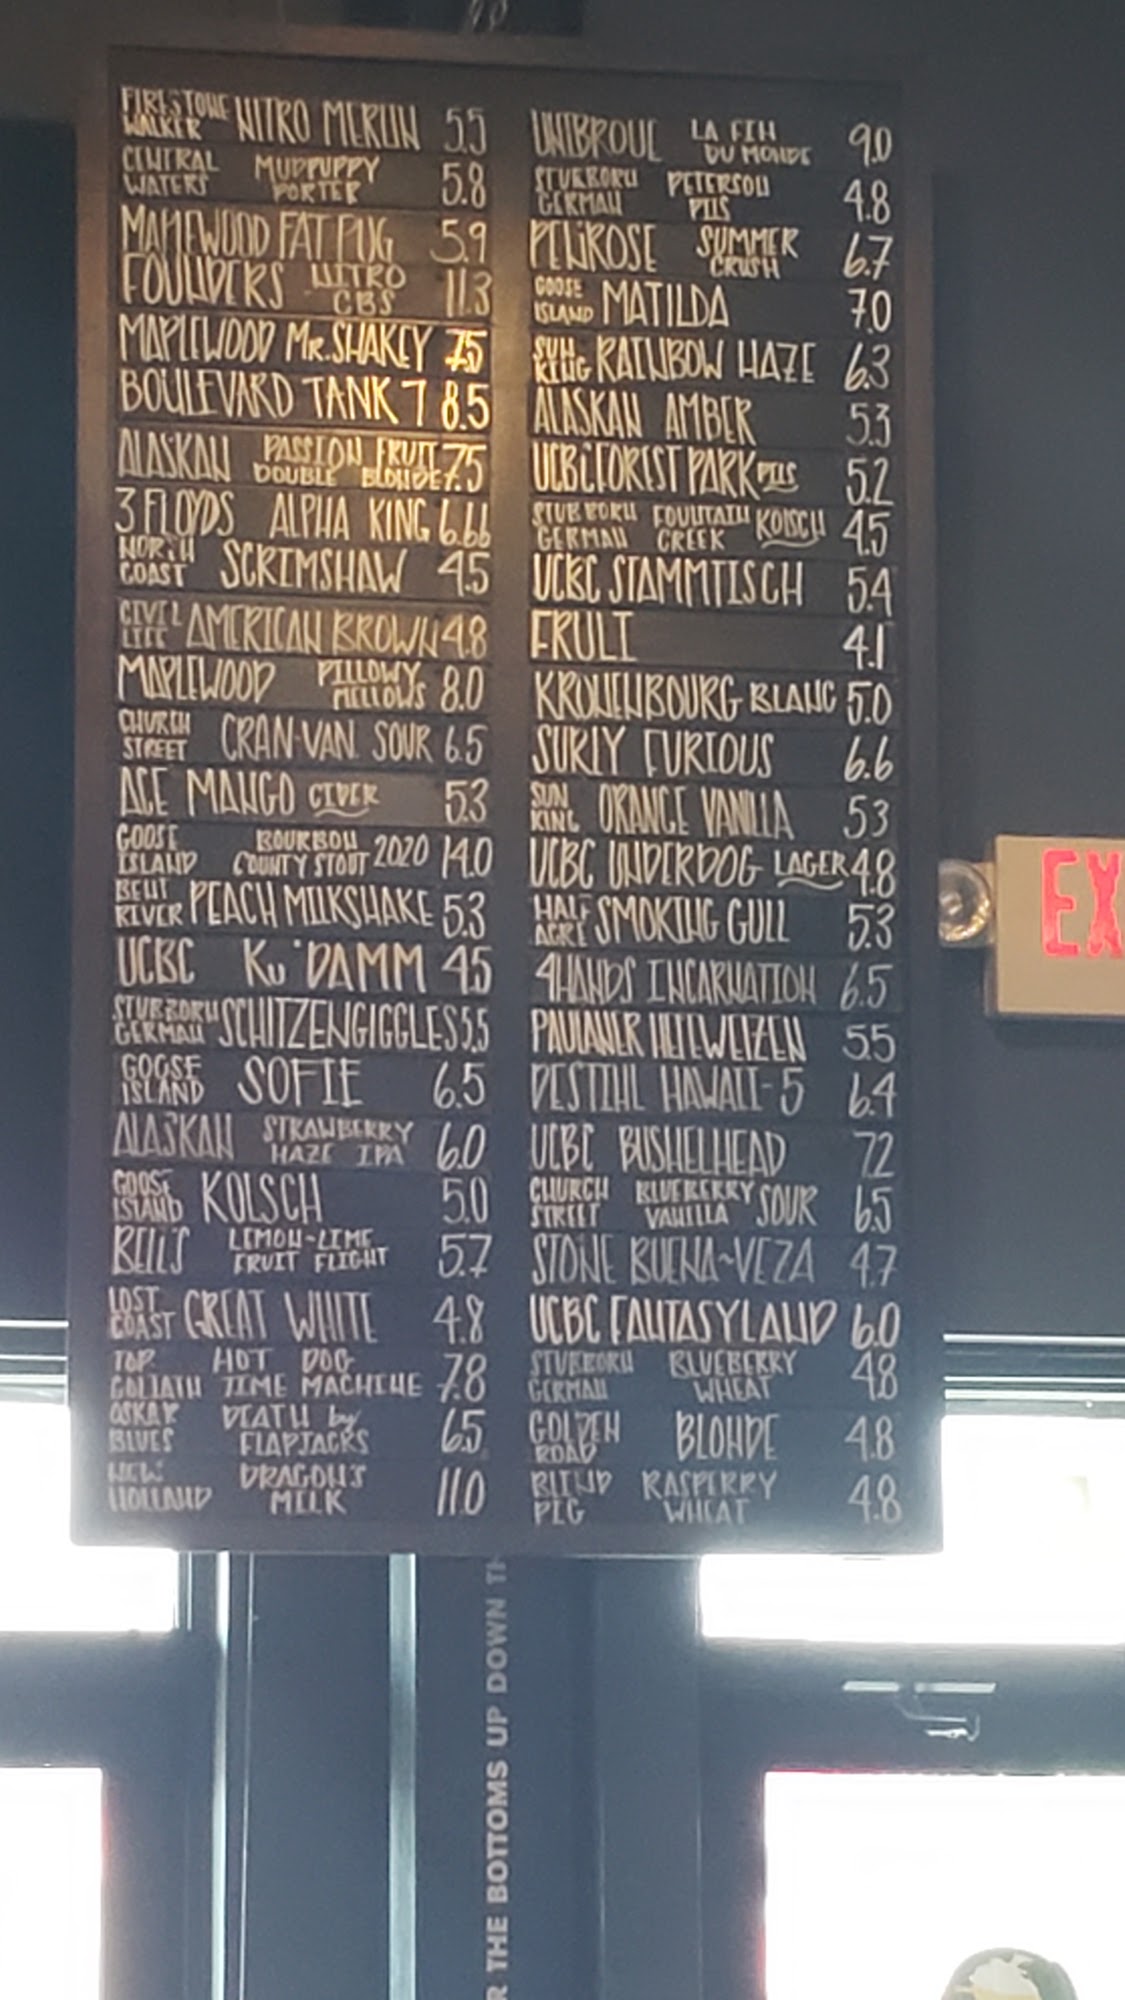 FIRESTONE WALKER NITRO MERLIN 5.5
CENTRAL WATERS MUDPUPPY PORTER 5.8
MAPLEWOOD FAT PUG 5.9
FOUNDERS NITRO CBS 11.3
MAPLEWOOD Mr. SHAKEY 7.5
BOULEVARD TANK 7 8.5
ALASKAN PASSION FRUIT DOUBLE BLONDE 7.5
3 FLOYDS ALPHA KING 6.66
NORTH COAST SCRIMSHAW 4.5
CIVIL LIFE AMERICAN BROWN 4.8
MAPLEWOOD PILLOWY MELLOWS 8.0
CHURCH STREET CRAN-VAN SOUR 6.5
ACE MANGO CIDER 5.3
GOOSE ISLAND BOURBON COUNTY STOUT 2020 14.0
BENT RIVER PEACH MILKSHAKE 5.3
UCBC Ku'DAMM 4.5
STUBBORN GERMAN SCHITZENGIGGLES 5.5
GOOSE ISLAND SOFIE 6.5
ALASKAN STRAWBERRY HAZE IPA 6.0
GOOSE ISLAND KOLSCH 5.0
BELL'S LEMON-LIME FRUIT FLIGHT 5.7
LOST COAST GREAT WHITE 4.8
TOP. GOLIATH HOT DOG TIME MACHINE 7.8
OSKAR BLUES DEATH by FLAPJACKS 6.5
NEW HOLLAND DRAGON'S MILK 11.0
UNIBROUE LA FIN DU MONDE 9.0
STUBBORN GERMAN PETERSON PILS 4.8
PENROSE SUMMER CRUSH 6.7
GOOSE ISLAND MATILDA 7.0
SUN KING RAINBOW HAZE 6.3
ALASKAN AMBER 5.3
UCBC FOREST PARK PILS 5.2
STUBBORN GERMAN FOUNTAIN CREEK KOLSCH 4.5
UCBC STAMMTISCH 5.4
FRULI 4.1
KRONENBOURG BLANC 5.0
SURLY FURIOUS 6.6
SUN KING ORANGE VANILLA 5.3
UCBC UNDERDOG LAGER 4.8
HALF ACRE SMOKING GULL 5.3
4HANDS INCARNATION 6.5
PAULANER HEFEWEIZEN 5.5
DESTIHL HAWAII-5 6.4
UCBC BUSHELHEAD 7.2
CHURCH STREET BLUEBERRY VANILLA SOUR 6.5
STONE BUENA~VEZA 4.7
UCBC FANTASYLAND 6.0
STUBBORN GERMAN BLUEBERRY WHEAT 4.8
GOLDEN ROAD BLONDE 4.8
BLIND PIG RASPERRY WHEAT 4.8
EX
THE BOTTOMS UP DOWN